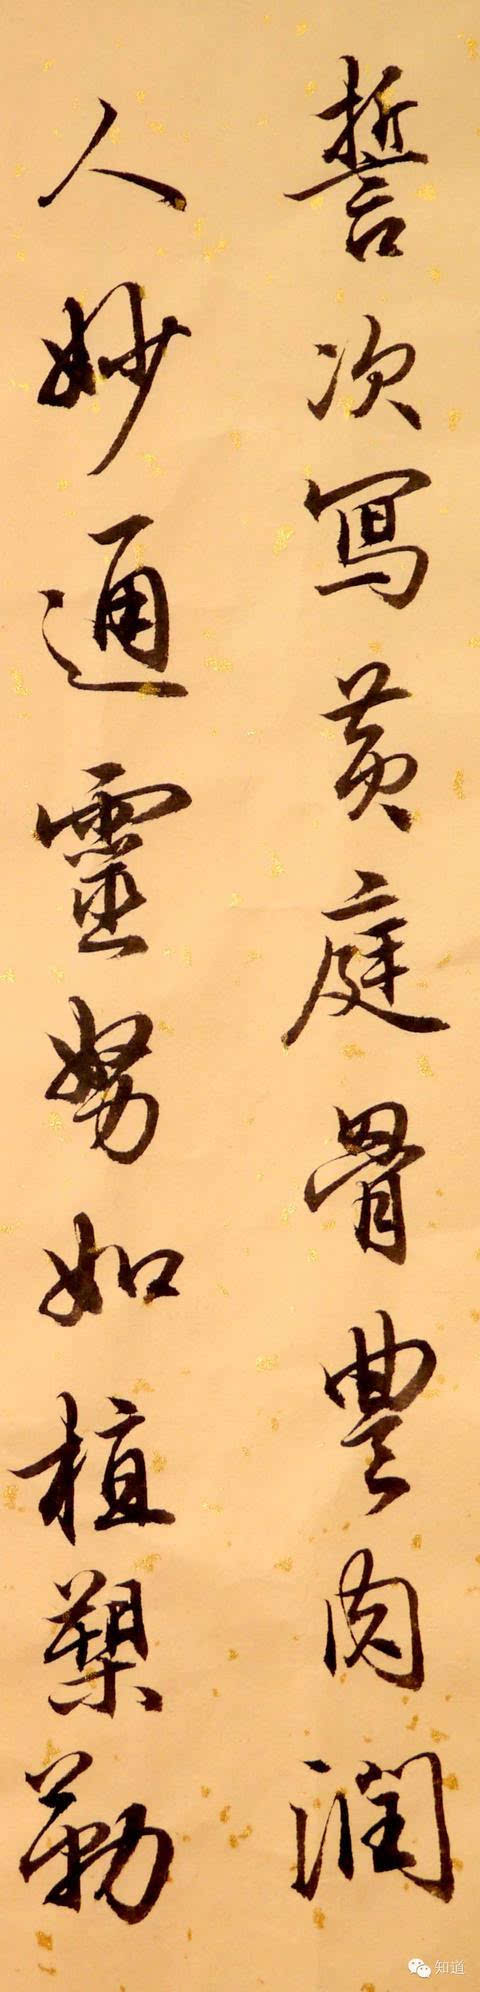 誓次寫黄庭骨豊肉潤
人妙通靈努如植槊勒
知道